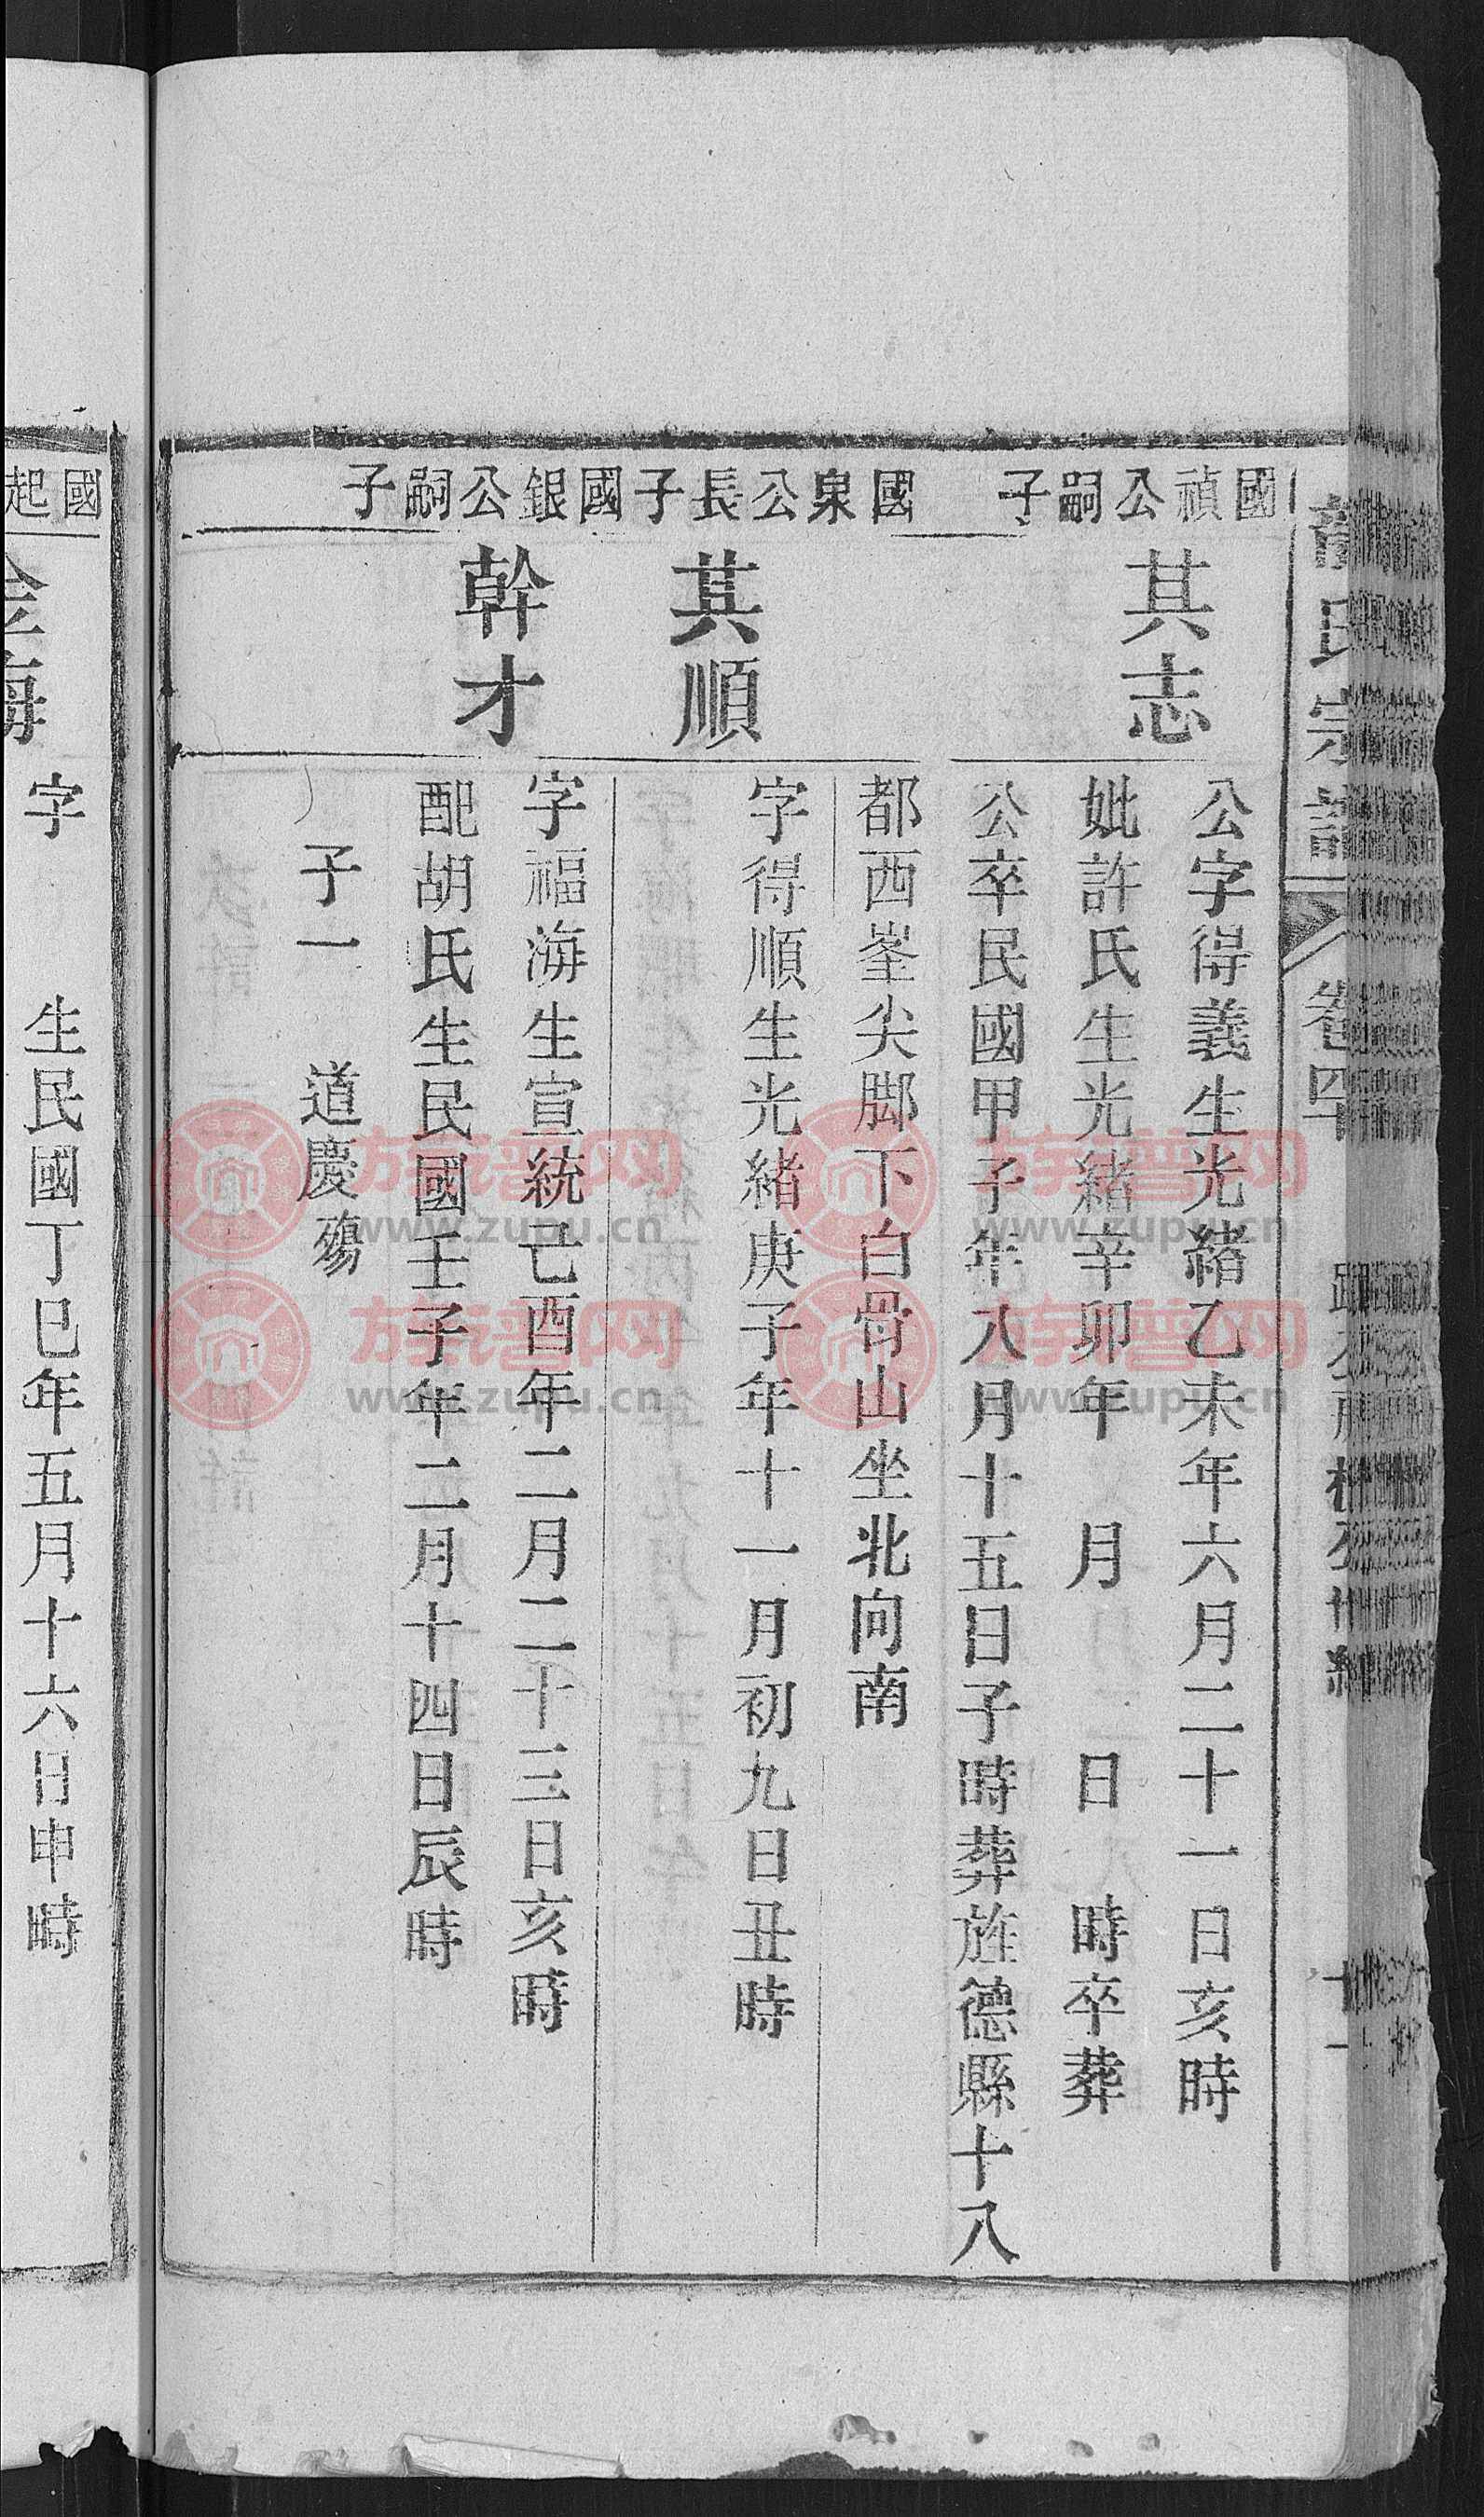 氏宗譜
卷四
十一
國禎公嗣子
其志
公字得義生光緒乙未年六月二十一日亥時
妣許氏生光緒辛卯年 月 日 時卒葬
公卒民國甲子年八月十五日子時葬旌德縣十八
都西峯尖脚下白骨山坐北向南
國泉公長子
其順
字得順生光緒庚子年十一月初九日丑時
國銀公嗣子
幹才
字福海生宣統己酉年二月二十三日亥時
配胡氏生民國壬子年二月十四日辰時
子一 道慶殤
國起
字 生民國丁巳年五月十六日申時
族谱网
www.zupu.cn
族谱网
www.zupu.cn
族谱网
www.zupu.cn
族谱网
www.zupu.cn